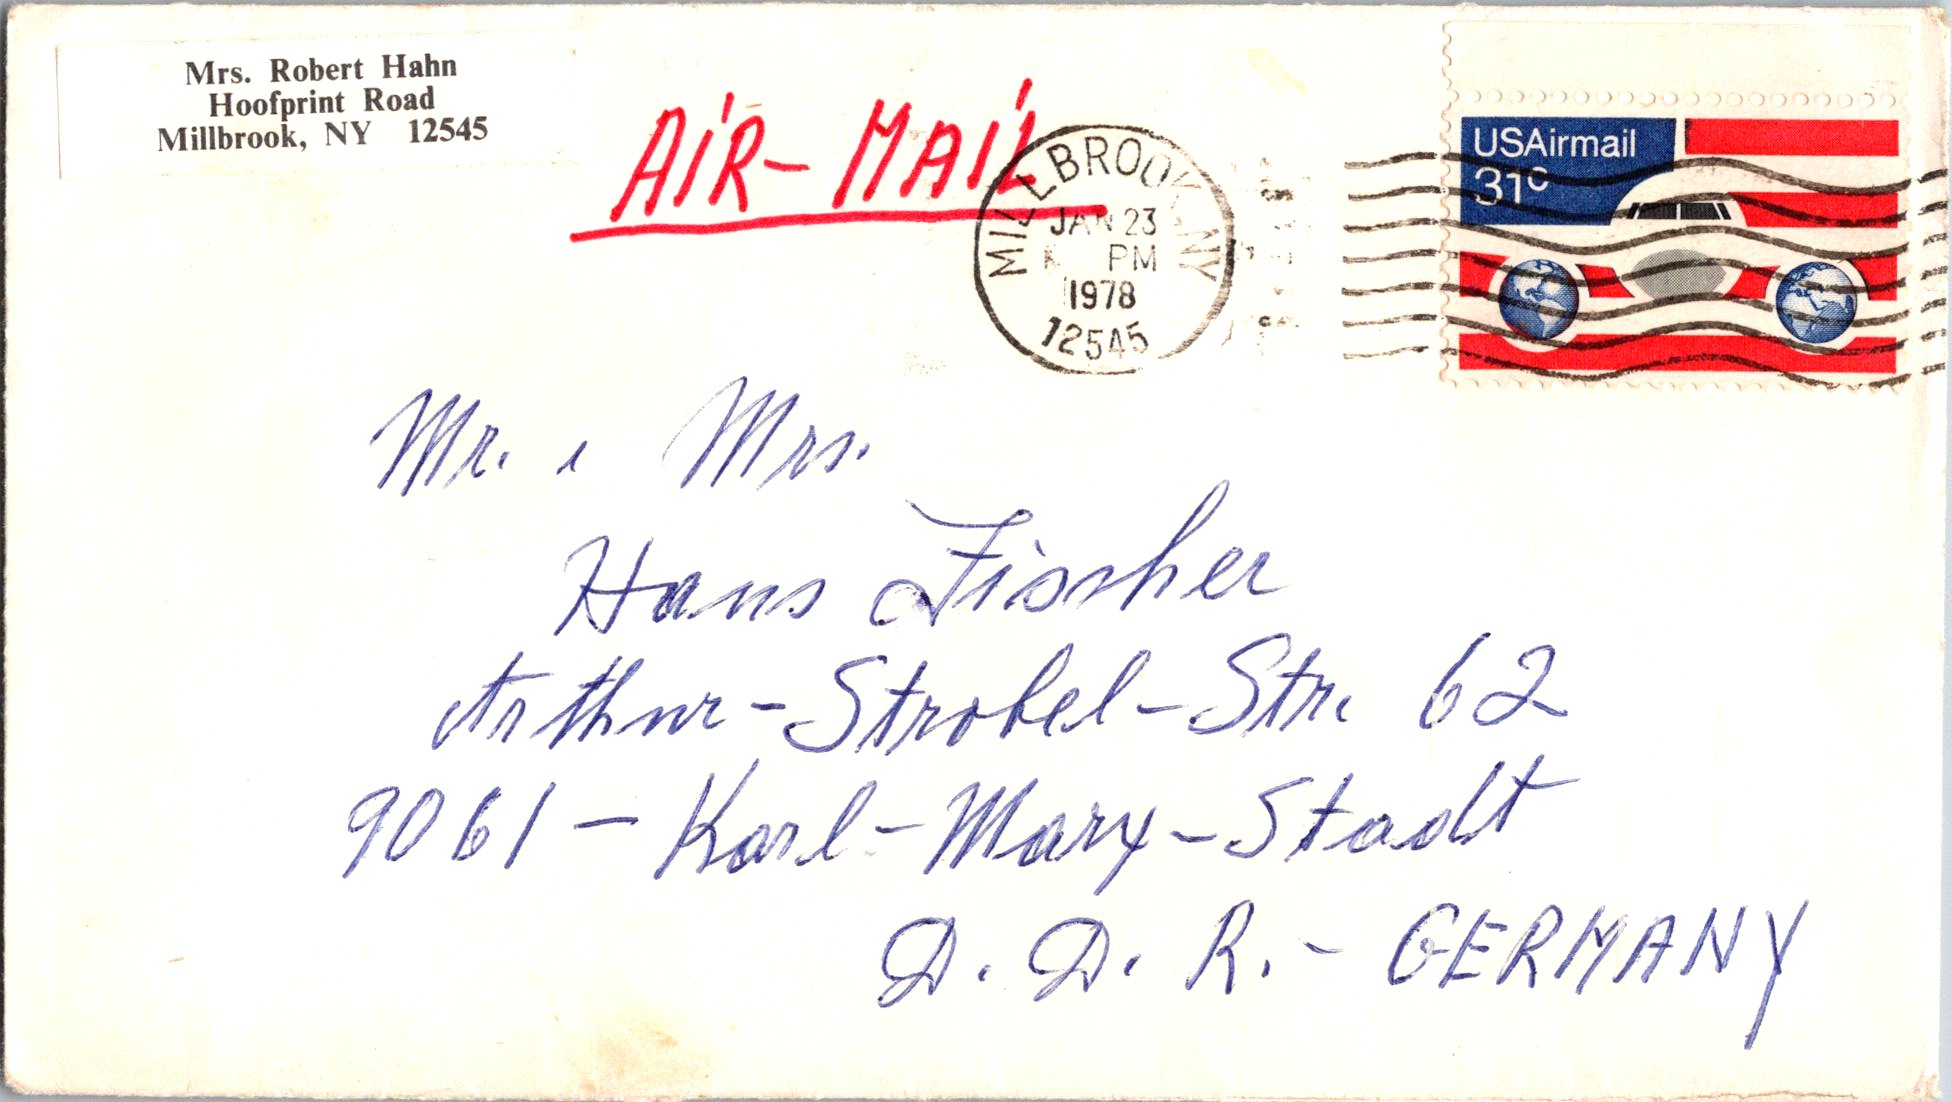 Mrs. Robert Hahn
Hoofprint Road
Millbrook, NY 12545
AIR-MAIL
MILLBROOK, NY
JAN 23
PM
1978
12545
USAirmail
31c
Mr. & Mrs.
Hans Fischer
Arthur-Strobel-Str. 62
9061 - Karl-Marx-Stadt
D. D. R. - GERMANY